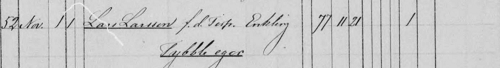 52 Nov. 1 1 Lars Larsson f.d. Torp. Enkling 77 11 21 1
Tybble egor